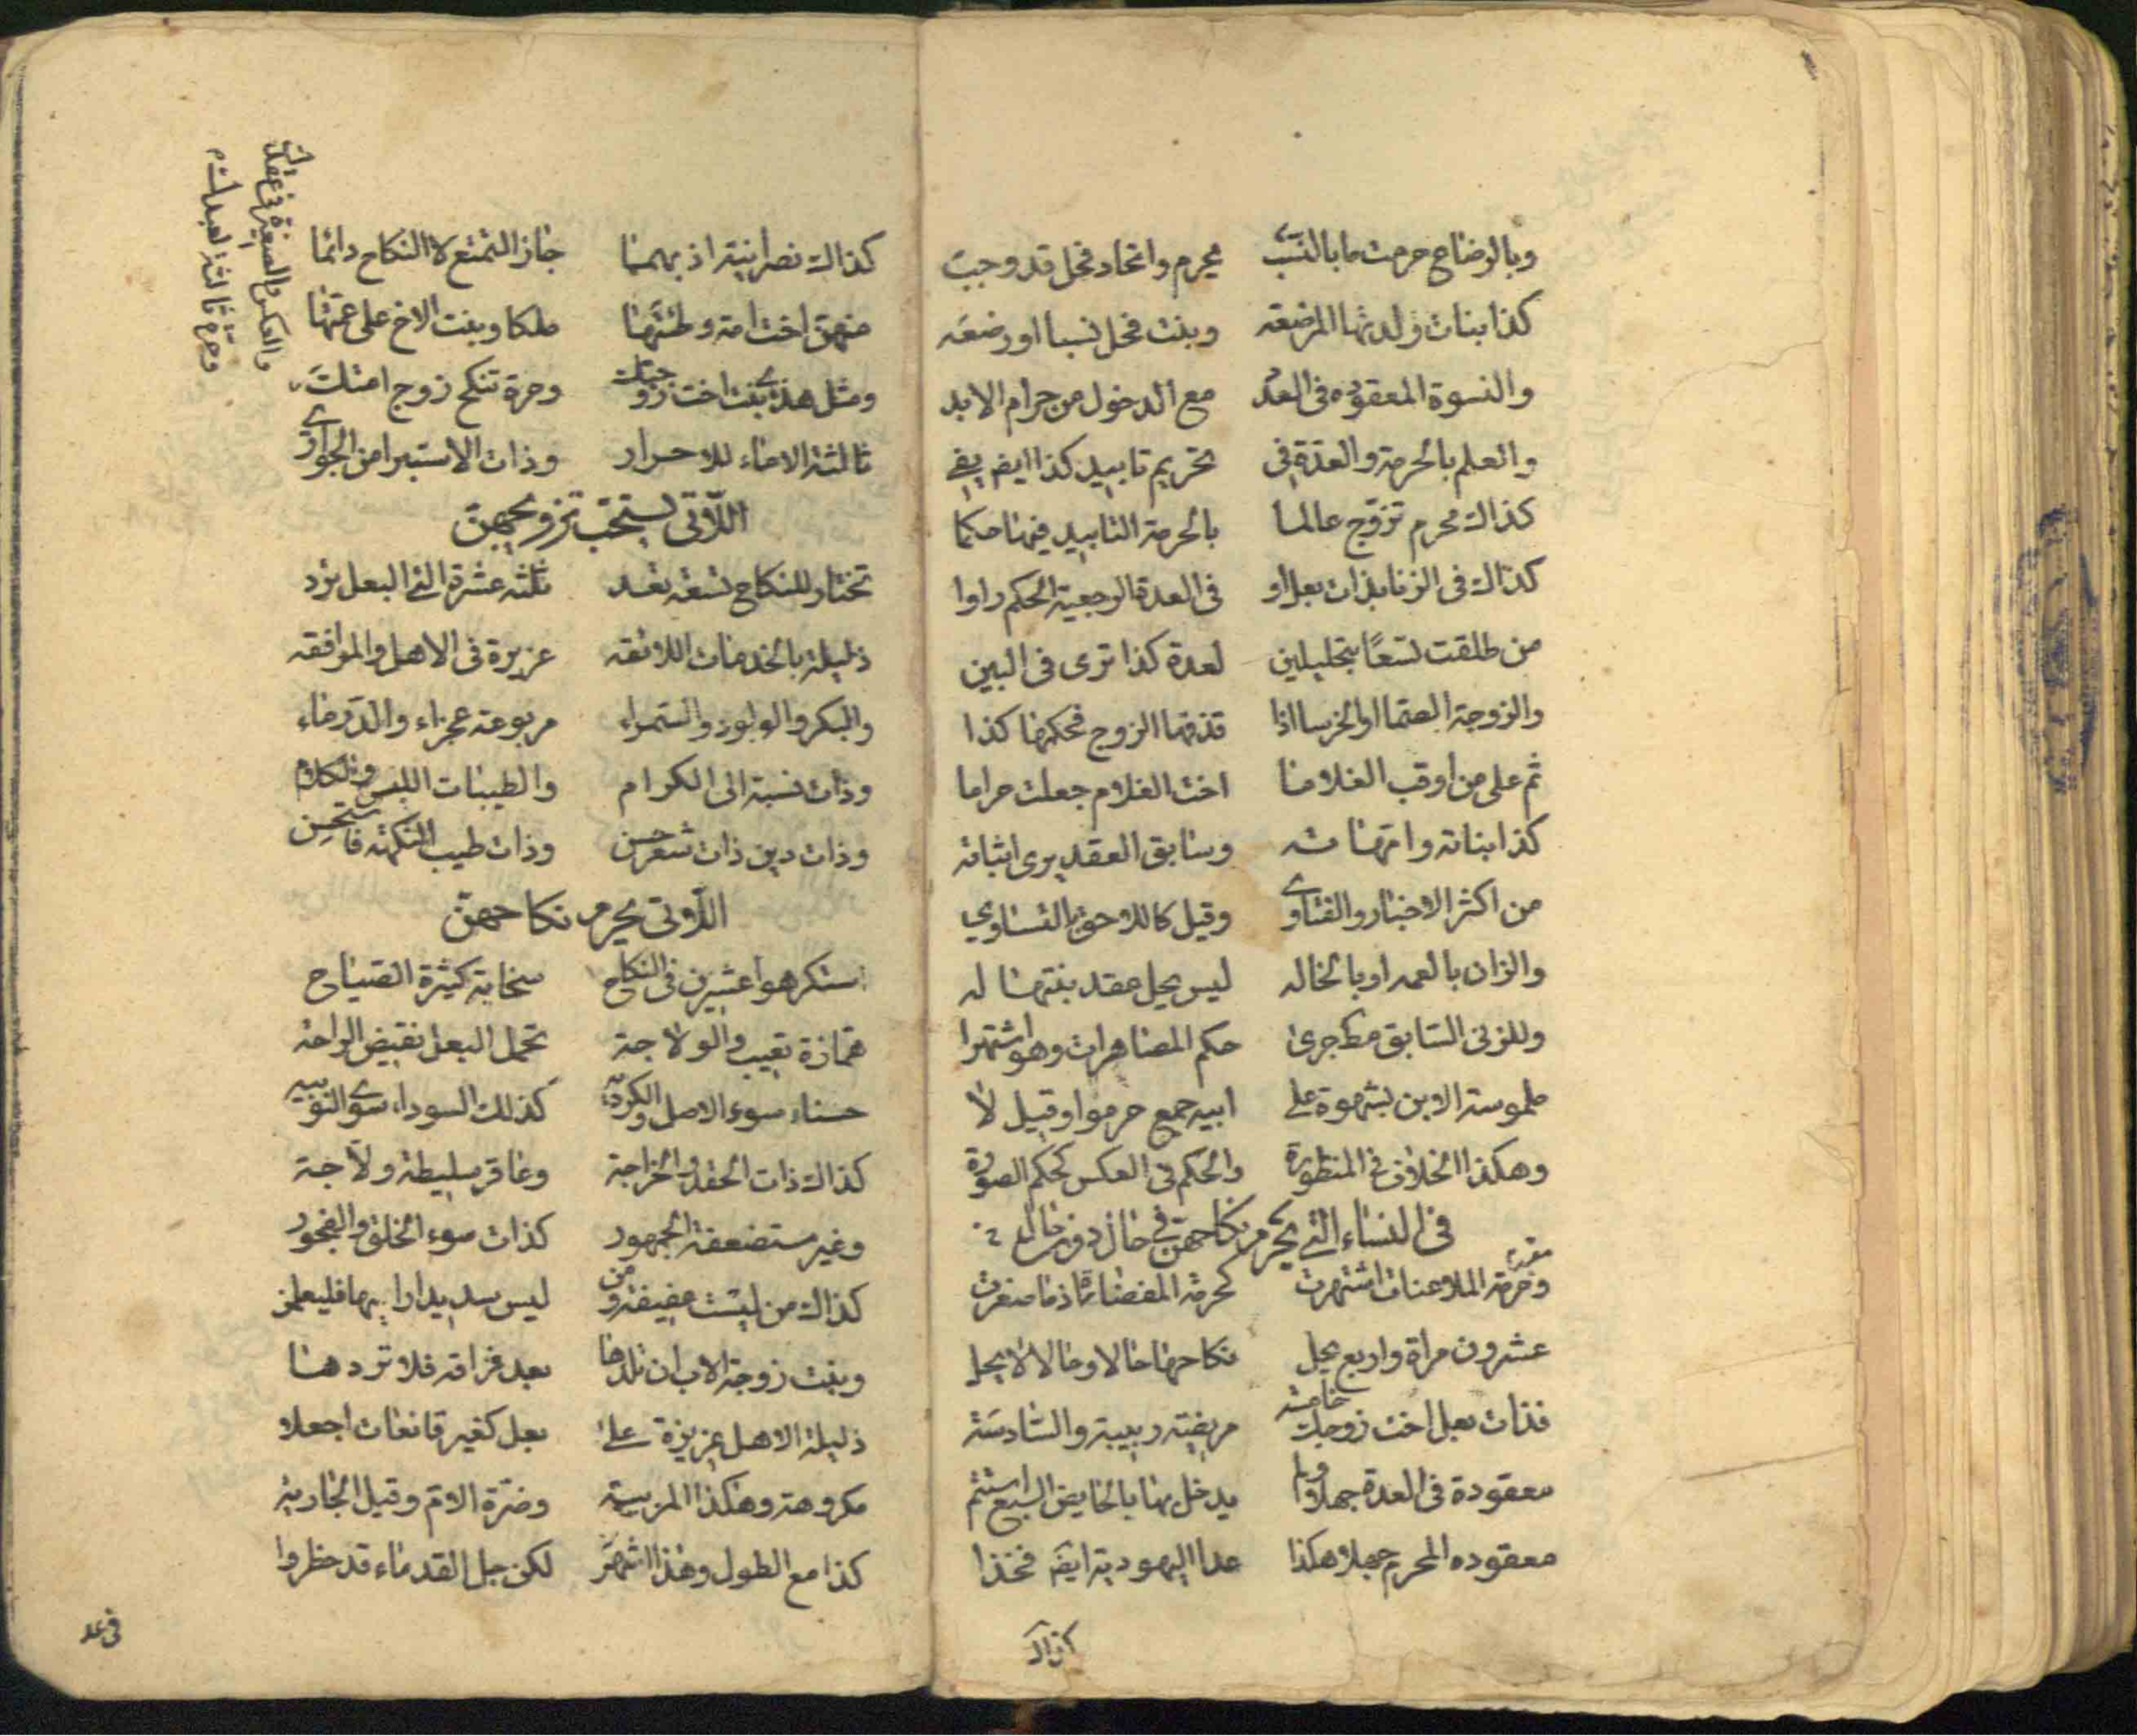 وبالرضاع حرمت ما بالنسب يحرم واتحاد فحل قد وجب
كذا بنات ولدتها المرضعه وبنت فحل نسبا او رضعه
والنسوة المعقوده فى العدد مع الدخول من حرام الابد
والعلم بالحرمة والعدة فى تحريم تابيد كذا ايضا يفى
كذاك محرم تزوج عالما بالحرمة التابيد فيها حكما
كذاك فى الزنا بذات بعل او فى العدة الرجعية الحكم راوا
من طلقت تسعًا بتحليلين لعدة كذا ترى فى البين
والزوجة الصما او الخرسا اذا قذفها الزوج فحكمها كذا
ثم على من اوقب الغلاما اخت الغلام جعلت حراما
كذا بناته وامهاته وسابق العقد يرى اثباته
من اكثر الاخبار والفتاوى وقيل كاللاحق بالتساوي
والزان بالعمه او بالخاله ليس يحل عقد بنتها له
وللزنى السابق مط جرى حكم المصاهرات وهو اشتهرا
ملموسة الابن بشهوة على ابيه جمع حرموا وقيل لا
وهكذا الخلاف فى المنظورة والحكم فى العكس كحكم الصورة
فى النساء التى يحرم نكاحهن فى حال دون حال
وحرمة الملاعنات اشتهرت كحرمة المفضاة اذ ما صغرت
عشرون مراة واربع يحل نكاحها حالا وحالا لا يحل
فذات بعل اخت زوجك خامسه مربية ربيبة والسادسة
معقودة فى العدة جهلا ولم يدخل بها بالحايض السبع استتم
معقوده المحرم جهلا هكذا عدا اليهودية ايضا فخذا
كذاك
كذاك نصرانية اذ بهما جاز التمتع لا النكاح دائما
منهن اخت امة وطئتها ملكا وبنت الاخ على عمتها
ومثل هذى بنت اخت زوجتك وحرة تنكح زوج امتك
ثالثة الاماء للاحرار وذات الاستبرا من الجوارى
اللاتى يستحب تزويجهن
تختار للنكاح تسعة تعد ثلثه عشرة التى البعل تود
ذليلة بالخدمات اللائقه عزيزة فى الاهل والموافقه
والبكر والولود والسمراء مربوعة عجزاء والدرماء
وذات نسبة الى الكرام والطيبات اللبس والكلام
وذات دين ذات شعر حسن وذات طيب النكهة فاستحسن
اللاتى يحرم نكاحهن
استكرهوا عشرين فى النكاح سخابة كثيرة الصياح
همازة بعيب والولاجة تحمل البعل نقيض الراحه
حسناء سوء الاصل والكرديه كذلك السوداء سوى النوبيه
كذاك ذات الحقد والخراجة وعاقر سليطة ولاجة
وغير مستضعفة الجمهور كذات سوء الخلق والفجور
كذاك من ليست عفيفة ومن ليس سديدا رايها فليعلمن
وبنت زوجة الاب ان تلدها بعد فراقه فلا تردها
ذليلة الاهل عزيزة على بعل كغير قانعات اجعلا
مكروهة وهكذا المربيه وضرة الام وقيل الجاريه
كذا مع الطول وهذا اشهر لكن جل القدماء قد حظروا
فى عد
والعكس والصغيرة فى عقد
وحرة ثالثة لعبد